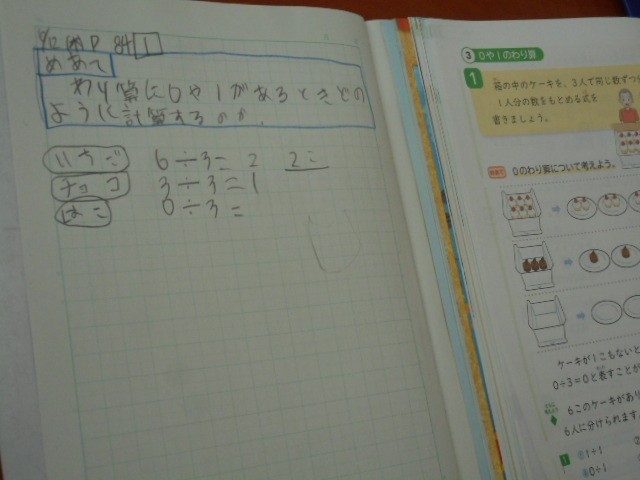 めあて
わり算に0や1があるときどの
ように計算するのか。
いちご 6÷3= 2 2こ
チョコ 3÷3=1
はこ 0÷3=
③ 0や1のわり算
1
箱の中のケーキを、3人で同じ数ずつ
1人分の数をもとめる式を
書きましょう。
0のわり算について考えよう。
ケーキが1こもないと
0÷3=0と表すことが
6このケーキがあり
6人に分けられます
1 ①1÷1
④0÷1